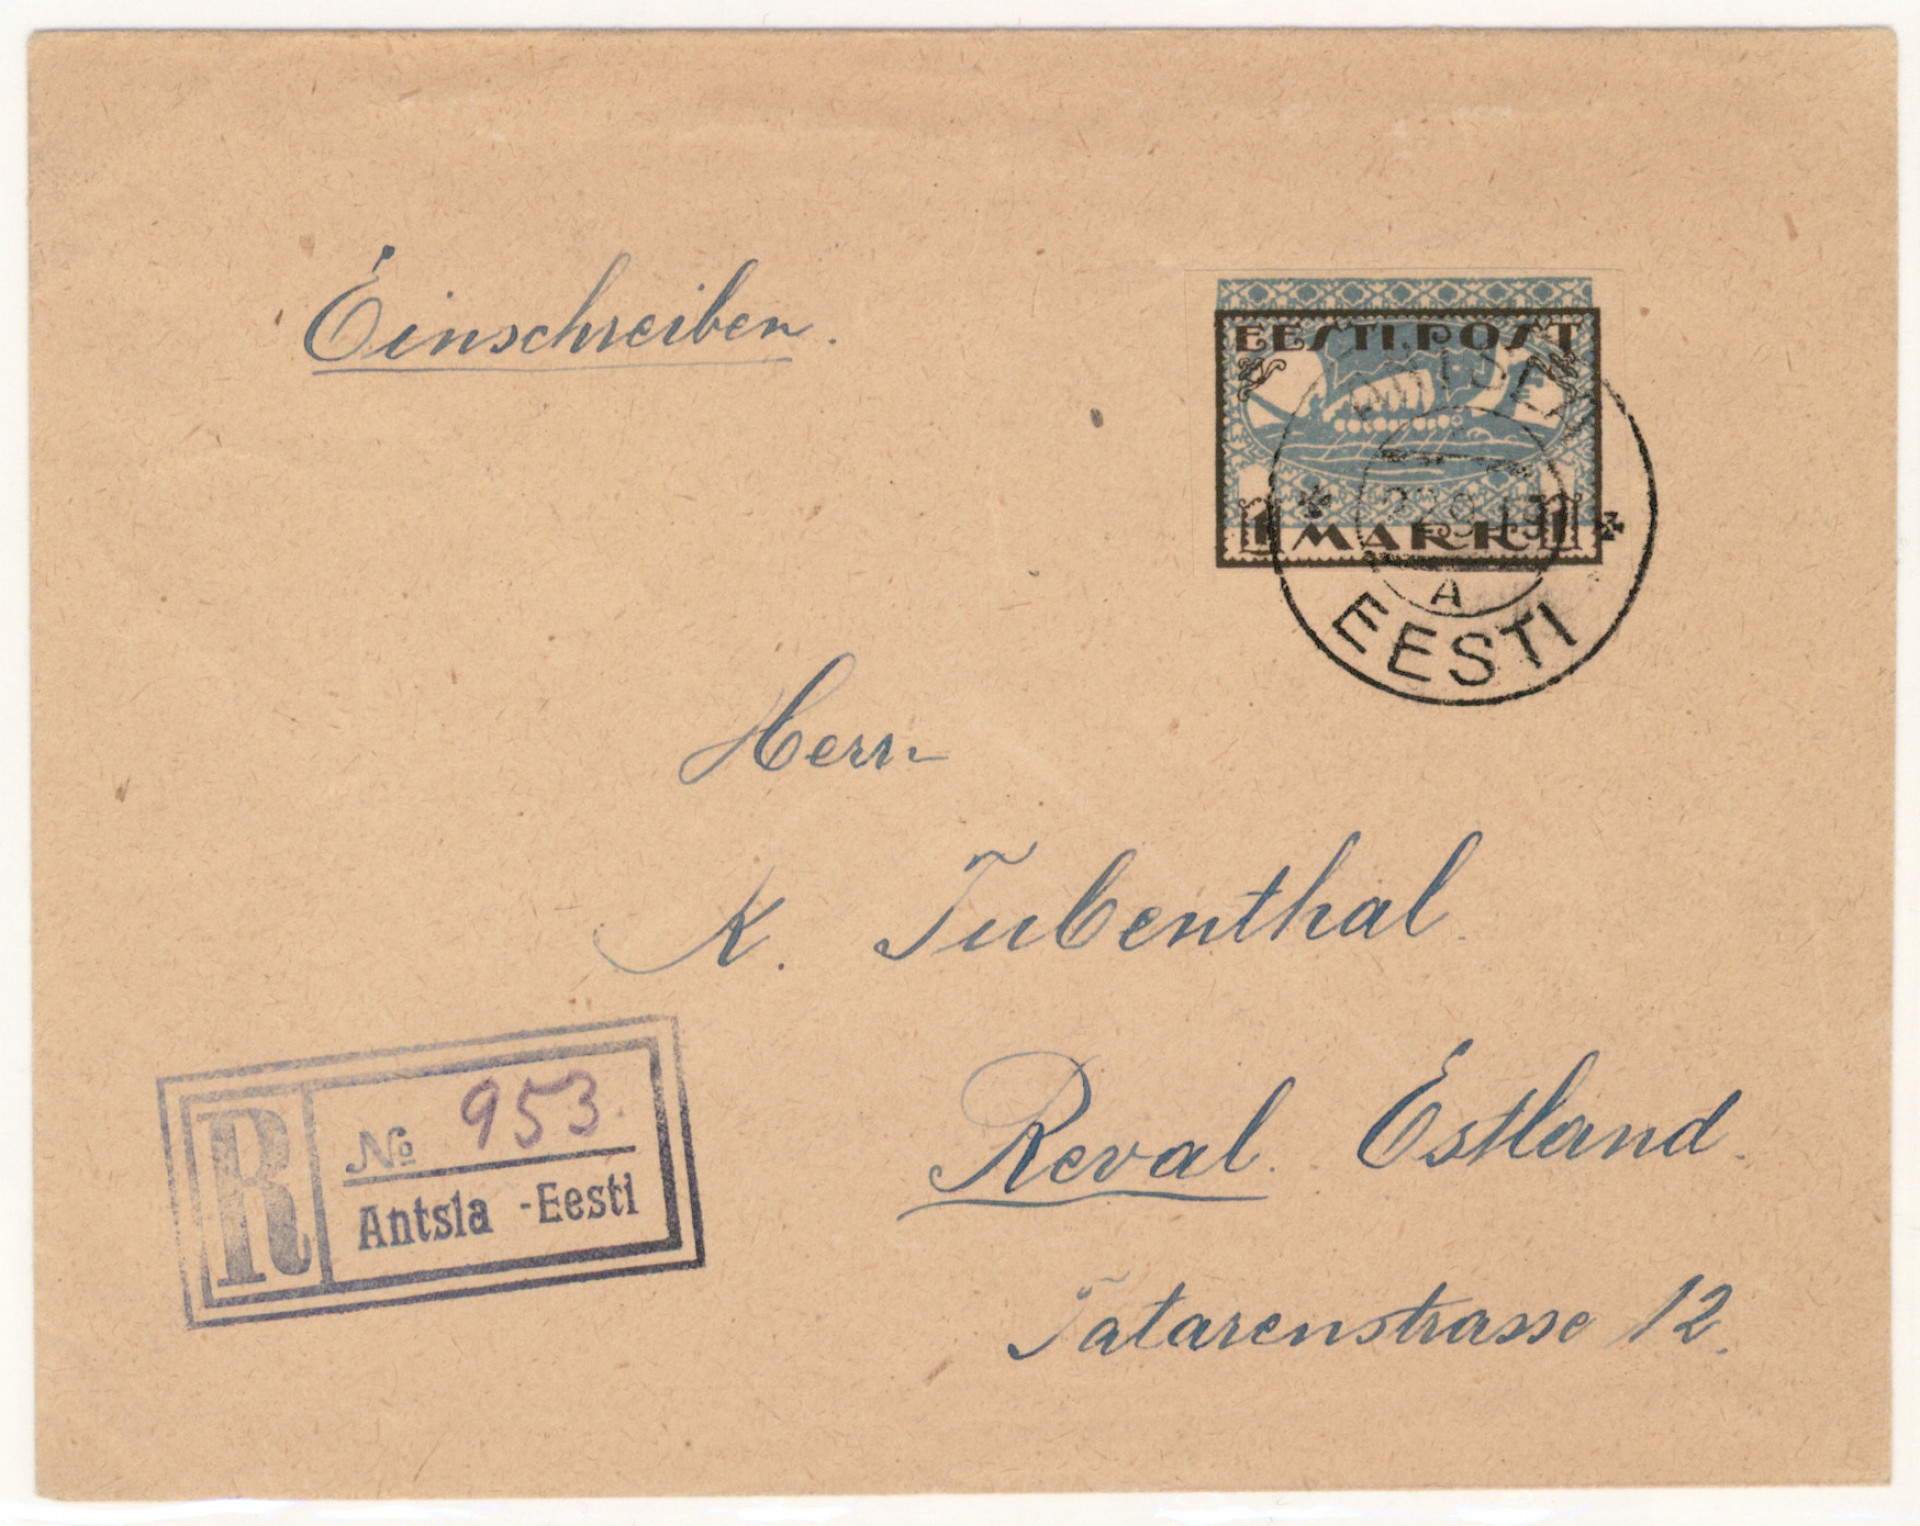 Einschreiben.
EESTI.POST
1 MARK 1
A
EESTI
Herr
K. Tubenthal.
R
№ 953.
Antsla -Eesti
Reval. Estland.
Tatarenstrasse 12.